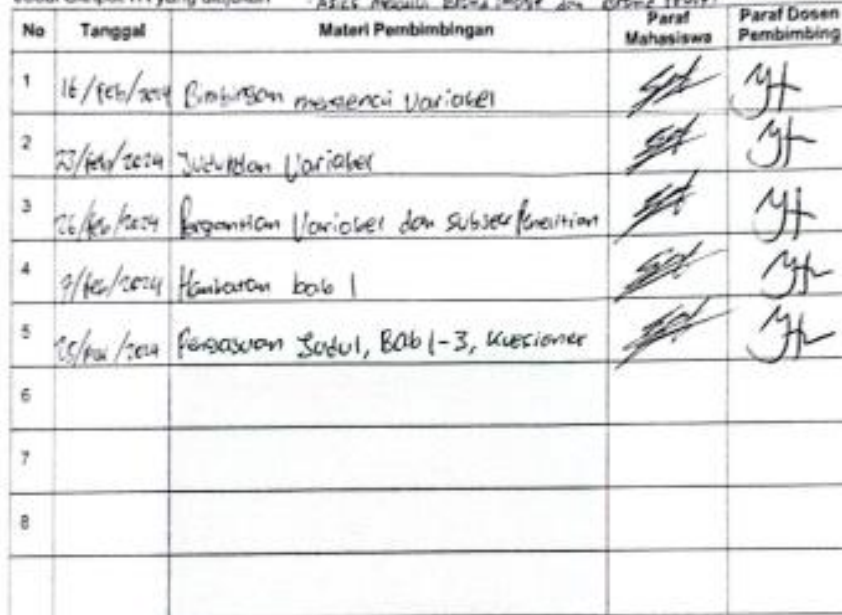 yang diajukan
No Tanggal Materi Pembimbingan Paraf Mahasiswa Paraf Dosen Pembimbing
1 16/Feb/2024 Bimbingan mengenai Variabel
2 23/Feb/2024 Variabel
3 26/Feb/2024 Pergantian Variabel dan Subjek Penelitian
4 /Feb/2024 Hambatan bab 1
5 25/ /2024 Judul, Bab 1-3, Kuesioner
6
7
8